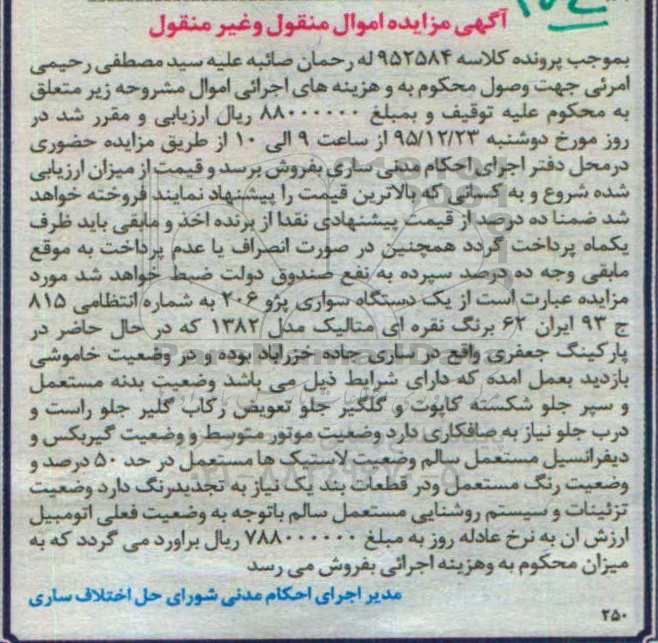 آگهی مزایده اموال منقول وغیر منقول
بموجب پرونده کلاسه ۹۵۲۵۸۴ له رحمان صائبه علیه سید مصطفی رحیمی
امرئی جهت وصول محکوم به و هزینه های اجرائی اموال مشروحه زیر متعلق
به محکوم علیه توقیف و بمبلغ ۸۸۰۰۰۰۰۰ ریال ارزیابی و مقرر شد در
روز مورخ دوشنبه ۹۵/۱۲/۲۳ از ساعت ۹ الی ۱۰ از طریق مزایده حضوری
درمحل دفتر اجرای احکام مدنی ساری بفروش برسد و قیمت از میزان ارزیابی
شده شروع و به کسانی که بالاترین قیمت را پیشنهاد نمایند فروخته خواهد
شد ضمنا ده درصد از قیمت پیشنهادی نقدا از برنده اخذ و مابقی باید ظرف
یکماه پرداخت گردد همچنین در صورت انصراف یا عدم پرداخت به موقع
مابقی وجه ده درصد سپرده به نفع صندوق دولت ضبط خواهد شد مورد
مزایده عبارت است از یک دستگاه سواری پژو ۲۰۶ به شماره انتظامی ۸۱۵
ج ۹۳ ایران ۶۲ برنگ نقره ای متالیک مدل ۱۳۸۲ که در حال حاضر در
پارکینگ جعفری واقع در ساری جاده خزراباد بوده و در وضعیت خاموشی
بازدید بعمل امده که دارای شرایط ذیل می باشد وضعیت بدنه مستعمل
و سپر جلو شکسته کاپوت و گلگیر جلو تعویض رکاب گلیر جلو راست و
درب جلو نیاز به صافکاری دارد وضعیت موتور متوسط و وضعیت گیربکس و
دیفرانسیل مستعمل سالم وضعیت لاستیک ها مستعمل در حد ۵۰ درصد و
وضعیت رنگ مستعمل ودر قطعات بند یک نیاز به تجدیدرنگ دارد وضعیت
تزئینات و سیستم روشنایی مستعمل سالم باتوجه به وضعیت فعلی اتومبیل
ارزش ان به نرخ عادله روز به مبلغ ۷۸۸۰۰۰۰۰۰ ریال براورد می گردد که به
میزان محکوم به وهزینه اجرائی بفروش می رسد
مدیر اجرای احکام مدنی شورای حل اختلاف ساری
۲۵۰